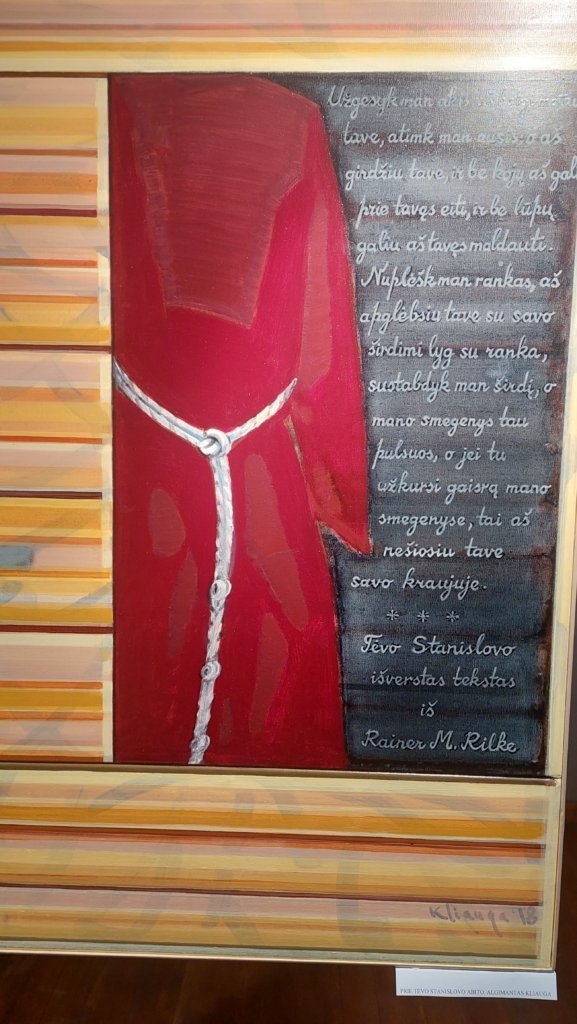 Užgesyk man akis
tave, atimk man ausis: o aš
girdžiu tave, ir be kojų aš gal
prie tavęs eiti, ir be lūpų
galiu aš tavęs maldauti.
Nuplėšk man rankas, aš
apglėbsiu tave su savo
širdimi lyg su ranka,
sustabdyk man širdį, o
mano smegenys tau
pulsuos, o jei tu
užkursi gaisrą mano
smegenyse, tai aš
nešiosiu tave
savo kraujuje.
* * *
Tėvo Stanislovo
išverstas tekstas
iš
Rainer M. Rilke
Kliauga '18
PRIE TĖVO STANISLOVO ABITO. ALGIMANTAS KLIAUGA